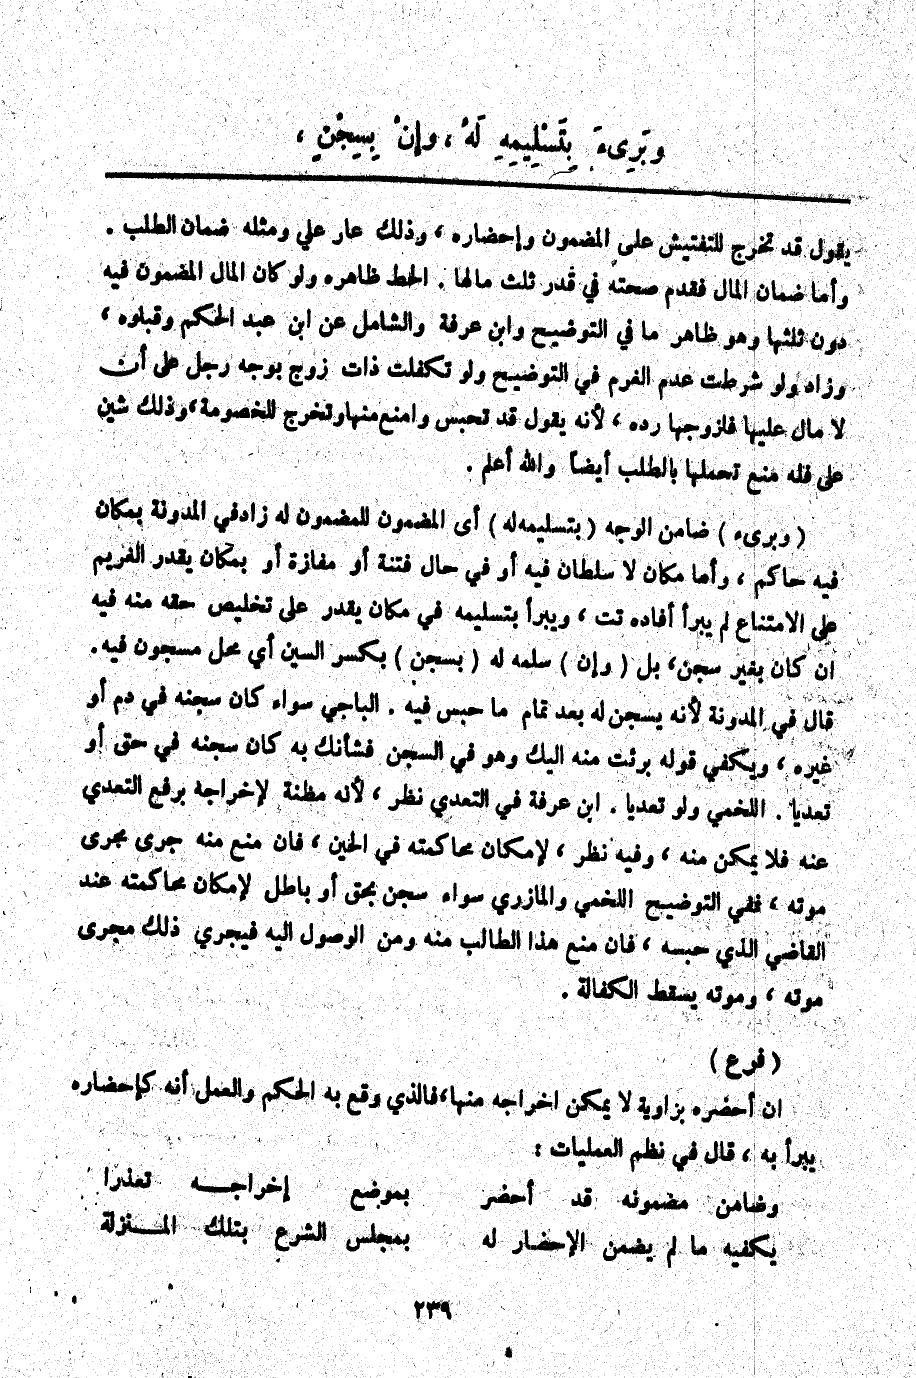 وَبَرِىءَ بِتَسْلِيمِهِ لَهُ ، وإنْ بِسِجْنٍ ،
يقول قد تخرج للتفتيش على المضمون وإحضاره ، وذلك عار علي ومثله ضمان الطلب .
وأما ضمان المال فقدم صحته في قدر ثلث مالها . الحط ظاهره ولو كان المال المضمون فيه
دون ثلثها وهو ظاهر ما في التوضيح وابن عرفة والشامل عن ابن عبد الحكم وقبلوه ،
وزاد ولو شرطت عدم الغرم في التوضيح ولو تكفلت ذات زوج بوجه رجل على أن
لا مال عليها فلزوجها رده ، لأنه يقول قد تحبس وامنع منها وتخرج للخصومة ، وذلك شين
على فله منع تحملها بالطلب أيضاً والله أعلم .
( وبرىء ) ضامن الوجه ( بتسليمه له ) أى المضمون للمضمون له زاد في المدونة بمكان
فيه حاكم ، وأما مكان لا سلطان فيه أو في حال فتنة أو مفازة أو بمكان يقدر الغريم
على الامتناع لم يبرأ أفاده تت ، ويبرأ بتسليمه في مكان يقدر على تخليص حقه منه فيه
ان كان بغير سجن ، بل ( وإن ) سلمه له ( بسجن ) بكسر السين أي محل مسجون فيه .
قال في المدونة لأنه يسجن له بعد تمام ما حبس فيه . الباجي سواء كان سجنه في دم أو
غيره ، ويكفي قوله برئت منه اليك وهو في السجن فشأنك به كان سجنه في حق أو
تعديا . اللخمي ولو تعديا . ابن عرفة في التعدي نظر ، لأنه مظنة لإخراجة برفع التعدي
عنه فلا يمكن منه ، وفيه نظر ، لإمكان محاكمته في الحين ، فان منع منه جرى مجرى
موته ، ففي التوضيح اللخمي والمازري سواء سجن بحق أو باطل لإمكان محاكمته عند
القاضي الذي حبسه ، فان منع هذا الطالب منه ومن الوصول اليه فيجري ذلك مجرى
موته ، وموته يسقط الكفالة .
( فرع )
ان أحضره بزاوية لا يمكن اخراجه منها ، فالذي وقع به الحكم والعمل أنه كإحضاره
يبرأ به ، قال في نظم العمليات :
وضامن مضمونه قد أحضر بموضع إخراجــه تعذرا
يكفيه ما لم يضمن الإحضار له بمجلس الشرع بتلك المــنزلة
٢٣٩